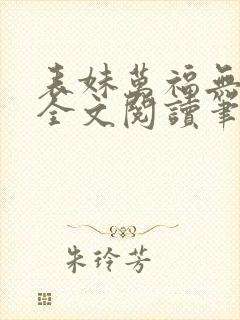 表妹萬福無
全文閱讀筆
朱玲芳